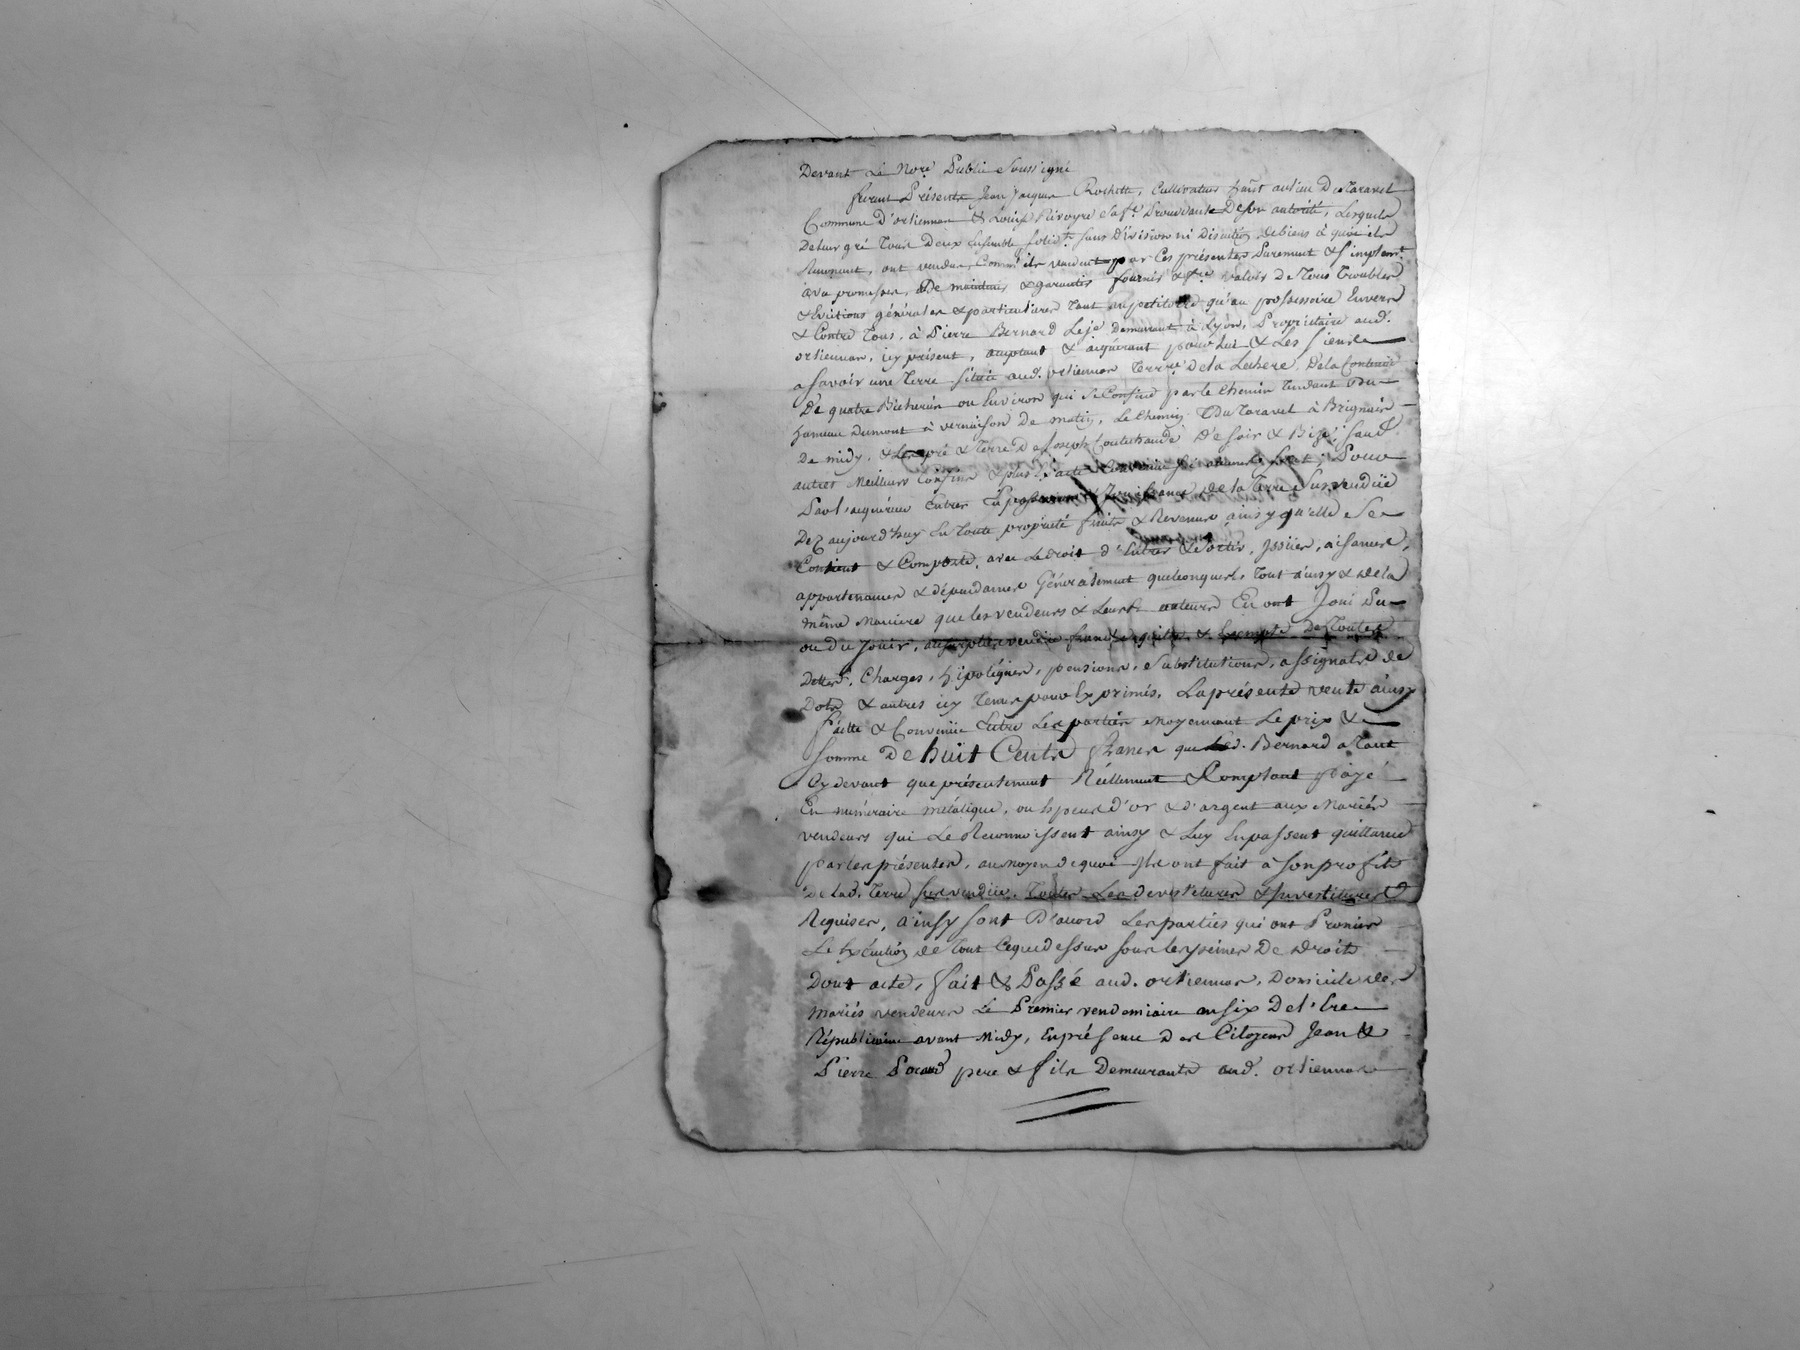 Devant Le Nore Public Soussigné
furent Présents Jean Jacques Rochette, Cultivateur faist au lieu De Taravel
Commune d'orliennas & Louise Rivoyre Sa fe. Procédante De son autorité, Lesquels
De leur gré Tous Deux Ensemble solidt. sans Division ni Discution De biens à quoi ils
Renoncent, ont vendus, Comme ils vendent par Ces présentes Purement & simplemt.
avec promesses, De maintenir & garantir fournir & fre. valoir De Tous Troubles
& Evictions générales & particulieres Tant au petitoire qu'au possessoire Envers
& Contre Tous, à Pierre Bernard Le je. Demeurant à Lyon, Propriétaire aud.
orliennas, icy présent, acceptant & acquérant pour Lui & Les siens
a savoir une Terre située aud. orliennas Terrre. De la Lechere, De la Contenüe
De quatre Bicherées ou Environ qui se Confine par le Chemin Tendant Du
hameau Dumont à vernaison De matin, Le Chemin Du Taravel à Brignais
De midy, & Les pré & Terre De Joseph Coutechaude De soir & Bize, sauf
autres Meilleurs Confins & plus Pour
Pavl. acquéreur Entrer En possession & Jouissance De la Terre Sus vendüe
Dez aujourd'huy En Toute propriété fruits & Revenus ainsy qu'elle Se
Contient & Comporte, avec Le droit d'Entrer & Sortir, Issües, aisances,
appartenances & dépendances Généralement quelconques, Tout ainsy & De la
même Maniere que les vendeurs & Leurs auteurs En ont Joui Pu
ou Du Jouir, au surplus vendüe franche quitte & Exempte De Toutes
Dettes, Charges, hipotéques, pensions, Substitutions, assignats de
Dots & autres icy Tenus pour Exprimés. La présente vente ainsy
faitte & Convenüe Entre Les parties Moyennant Le prix &
somme De huit Cents francs que Led. Bernard a Tant
Cy devant que présentement Réellement & Comptant payé
En numéraire métalique, ou Espéces d'or & d'argent aux Mariés
vendeurs qui Le Reconnoissent ainsy & Luy En passent quittance
par Les présentes, au moyen de quoi Ils ont fait à son profit
De lad. Terre sus vendüe, Toutes Les devestitures & Investitures
Requises, ainsy sont D'accord Les parties qui ont Promis
Le Exécution de Tout Ceque dessus sous les peines De Droit
Dont acte, fait & Passé aud. orliennas, Domicile des
mariés vendeurs Le Premier vendemiaire an six De l'Ere
Républicaine avant Midy, En présence Des Citoyens Jean &
Pierre pere & fils Demeurants aud. orliennas